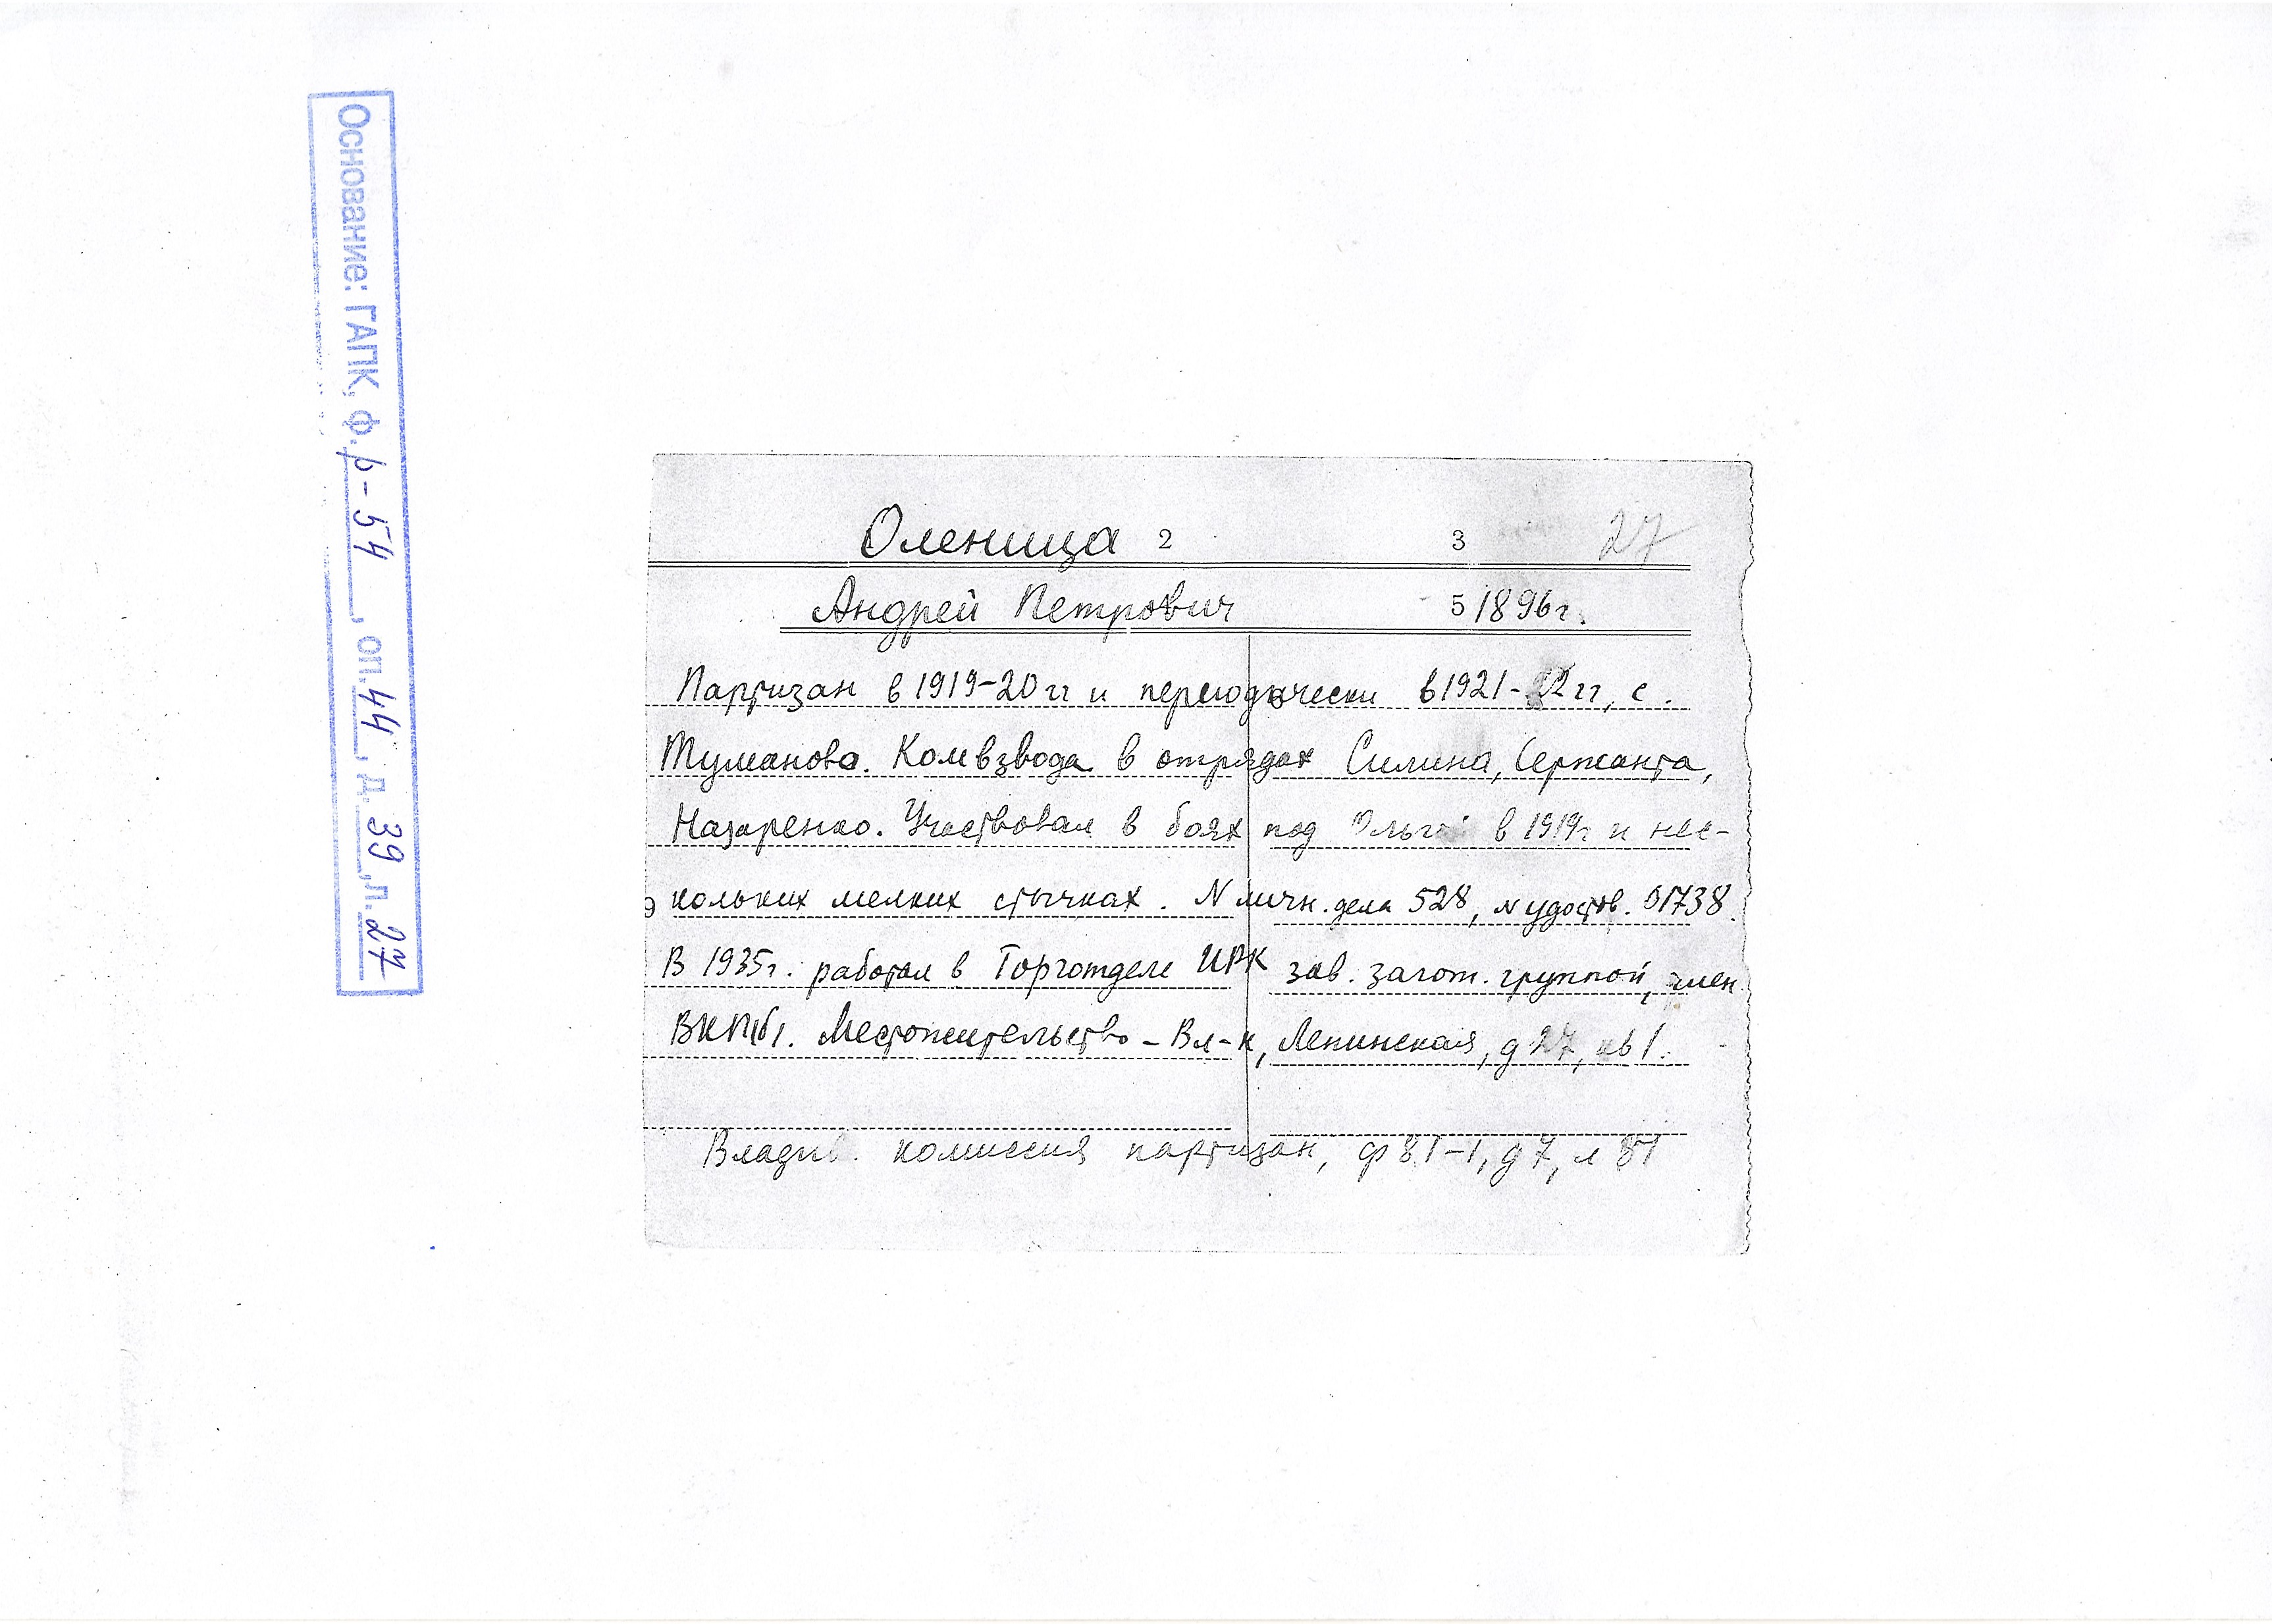 Основание: ГАПК, ф. р-54, оп. 44, д. 39, л. 27
Оленица 2 3 27
Андрей Петрович 5 1896г.
Партизан в 1919-20 гг и периодически в 1921-22 гг, с.
Туманова. Комвзвода в отрядах Силина, Сержанта,
Назаренко. Участвовал в боях под Ольгой в 1919г и нес-
9 кольких мелких стычках. N личн. дела 528, N удостов. 01738.
В 1935г. работал в Торготделе ИРК зав. загот. группой, член
ВКП(б). Местожительство - Вл-к, Ленинская, д 27, кв 1.
Владив. комиссия партизан, ф 81-1, д 7, л 81